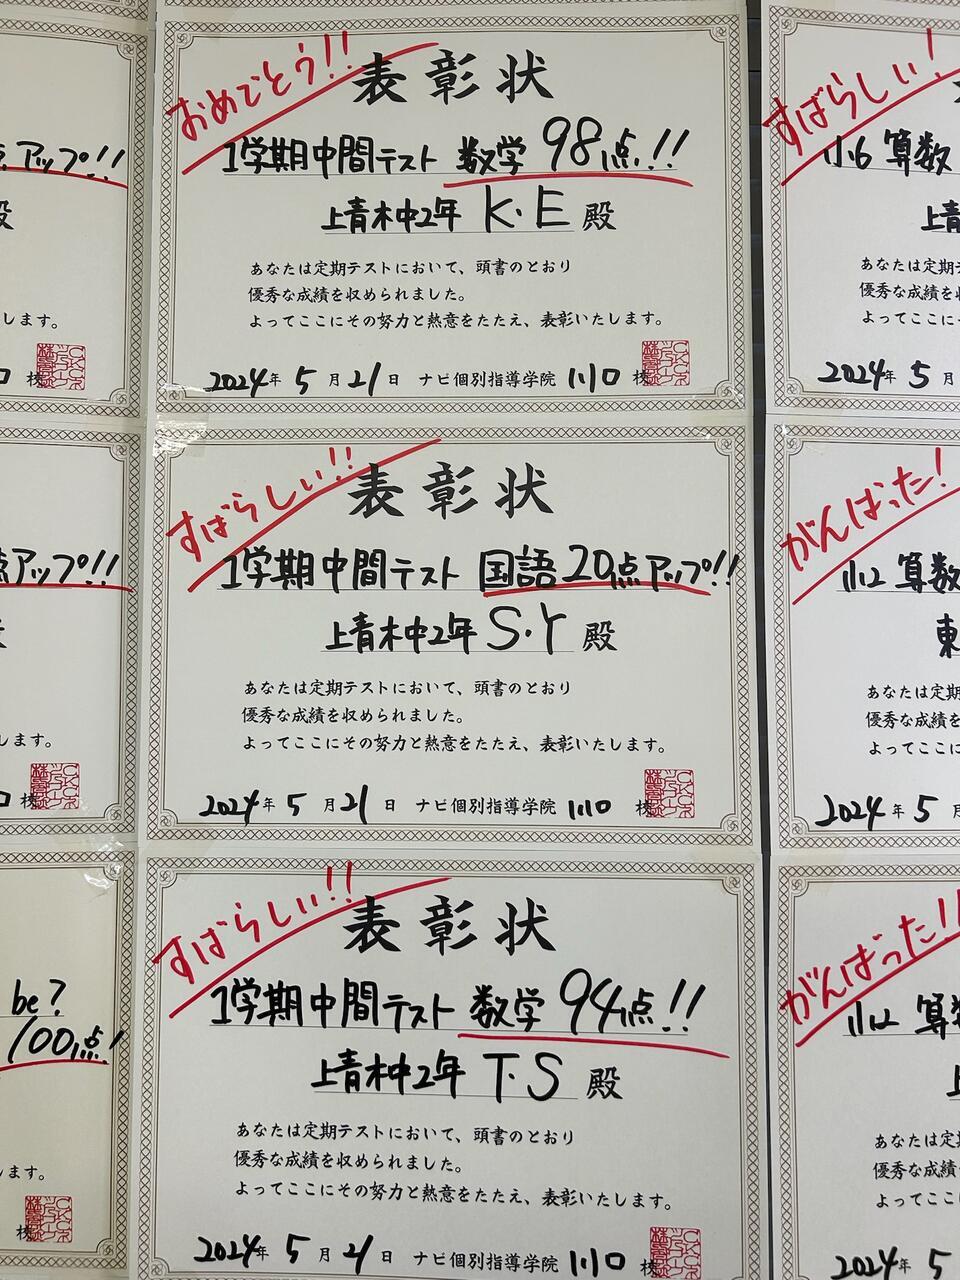 アップ!!
殿
します。
校
おめでとう!!
表彰状
1学期中間テスト 数学 98点!!
上青木中2年 K・E 殿
あなたは定期テストにおいて、頭書のとおり
優秀な成績を収められました。
よってここにその努力と熱意をたたえ、表彰いたします。
2024年 5月21日 ナビ個別指導学院 川口 校
すばらしい!
小6 算数
上青
あなたは定期
優秀な成績を
よってここに
2024年 5月
点アップ!!
します。
校
すばらしい!!
表彰状
1学期中間テスト 国語20点アップ!!
上青木中2年 S・Y 殿
あなたは定期テストにおいて、頭書のとおり
優秀な成績を収められました。
よってここにその努力と熱意をたたえ、表彰いたします。
2024年 5月21日 ナビ個別指導学院 川口 校
がんばった!
小2 算数
東
あなたは定期
優秀な成績を
よってここに
2024年 5月
be?
100点!
ます。
校
すばらしい!!
表彰状
1学期中間テスト 数学 94点!!
上青木中2年 T・S 殿
あなたは定期テストにおいて、頭書のとおり
優秀な成績を収められました。
よってここにその努力と熱意をたたえ、表彰いたします。
2024年 5月21日 ナビ個別指導学院 川口 校
がんばった!!
小2 算数
あなたは定期
優秀な成績
よってここに
2024年 5